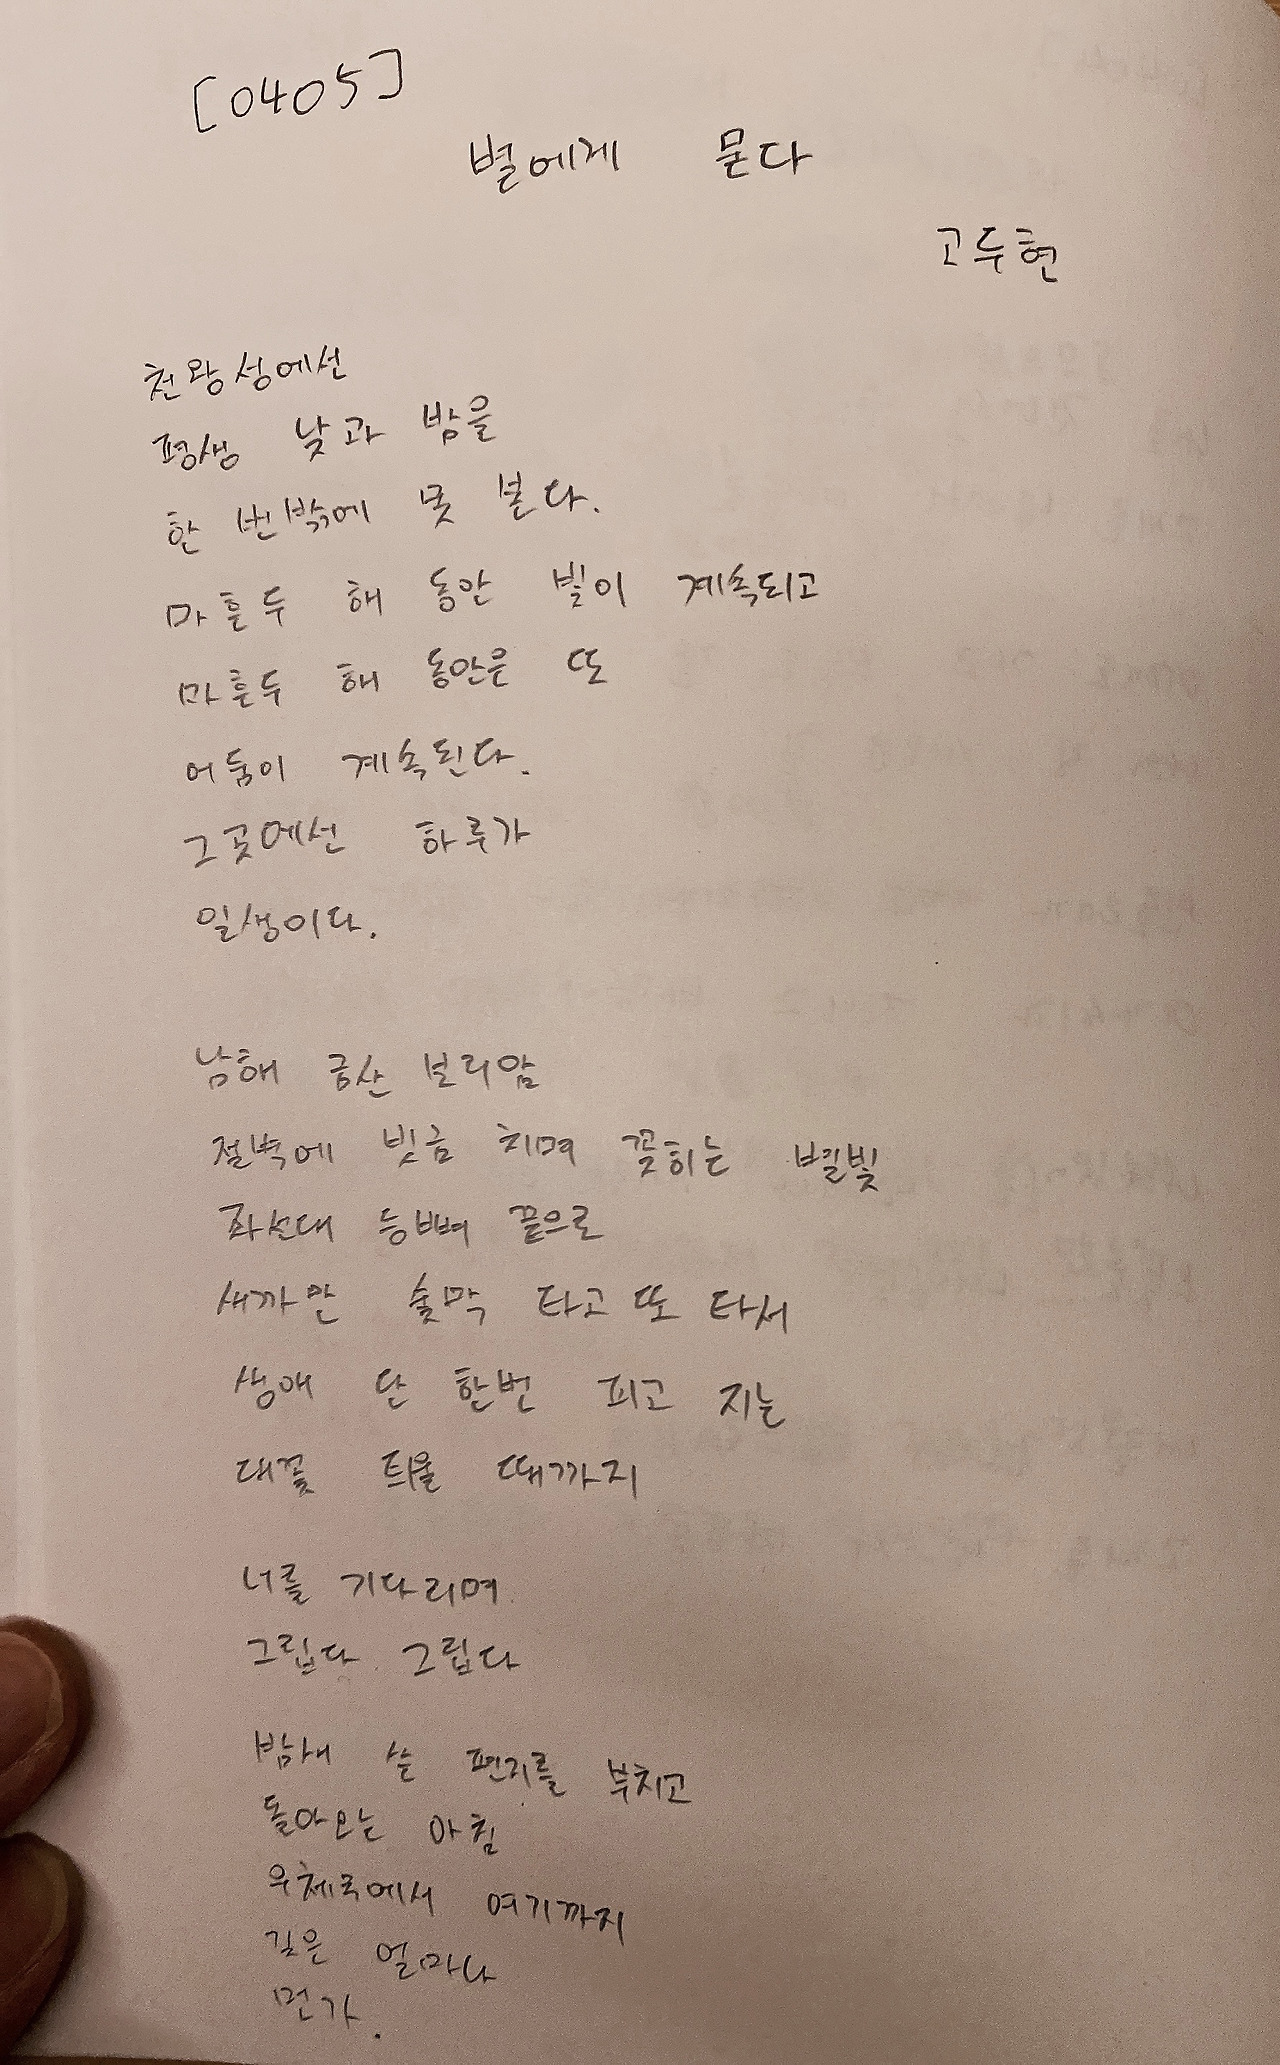 [0405]
별에게 묻다
고두현
천왕성에선
평생 낮과 밤을
한 번밖에 못 본다.
마흔두 해 동안 빛이 계속되고
마흔두 해 동안은 또
어둠이 계속된다.
그곳에선 하루가
일생이다.
남해 금산 보리암
절벽에 빗금 치며 꽂히는 별빛
좌선대 등뼈 끝으로
새까만 숯막 타고 또 타서
생애 단 한번 피고 지는
대꽃 틔울 때까지
너를 기다리며
그립다 그립다
밤새 쓴 편지를 부치고
돌아오는 아침
우체국에서 여기까지
길은 얼마나
먼가.